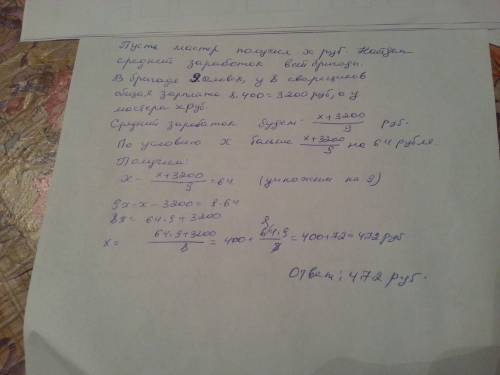 Пусть мастер получил x руб. Найдем
средний заработок всей бригады.
В бригаде 9 человек, у 8 сварщиков
общая зарплата 8·400=3200 руб, а у
мастера x руб.
Средний заработок будет: (x+3200)/9 руб.
По условию x больше (x+3200)/9 на 64 рубля.
Получим:
x - (x+3200)/9 = 64 (умножим на 9)
9x-x-3200=9·64
8x = 64·9+3200
x = (64·9+3200)/8 = 400 + (64·9)/8 = 400+72=472 руб
Ответ: 472 руб.